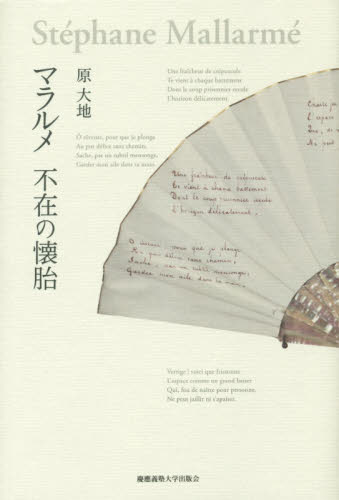 Stéphane Mallarmé
原 大地
マラルメ 不在の懐胎
Une fraîcheur de crépuscule
Te vient à chaque battement
Dont le coup prisonnier recule
L'horizon délicatement.
Ô rêveuse, pour que je plonge
Au pur délice sans chemin,
Sache, par un subtil mensonge,
Garder mon aile dans ta main.
Une fraîcheur de crépuscule
Te vient à chaque battement
Dont le coup prisonnier recule
L'horizon délicatement.
O rêveuse, pour que je plonge
Au pur délice sans chemin,
Sache, par un subtil mensonge,
Garder mon aile dans ta main.
Vertige ! voici que frissonne
L'espace comme un grand baiser
Qui, fou de naître pour personne,
Ne peut jaillir ni s'apaiser.
慶應義塾大学出版会